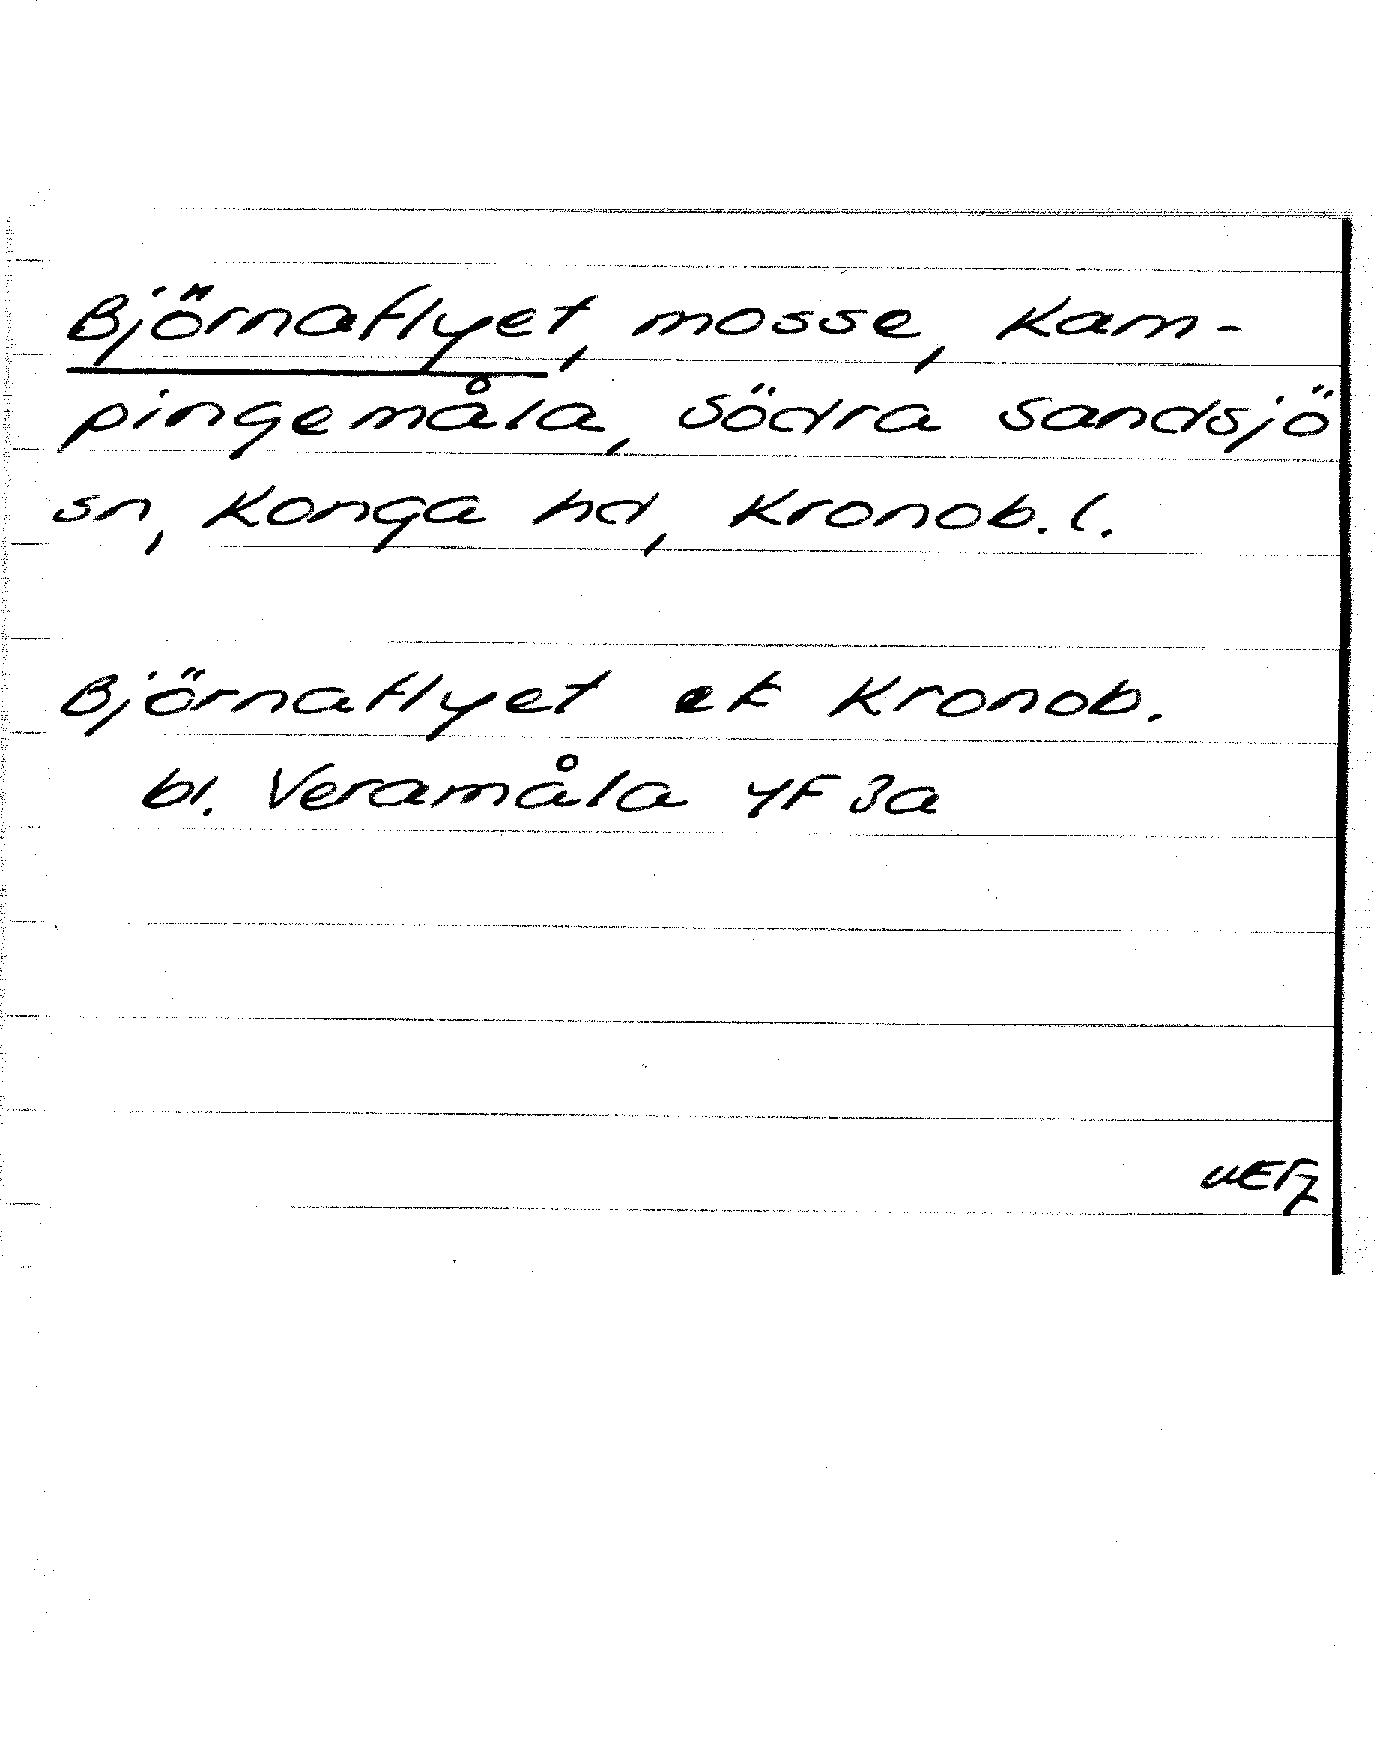 Björnaflyet, mosse, Kam-
pingemåla, Södra Sandsjö
sn, Konga hd, Kronob. l.
Björnaflyet ek Kronob.
bl. Veramåla 4F 3a